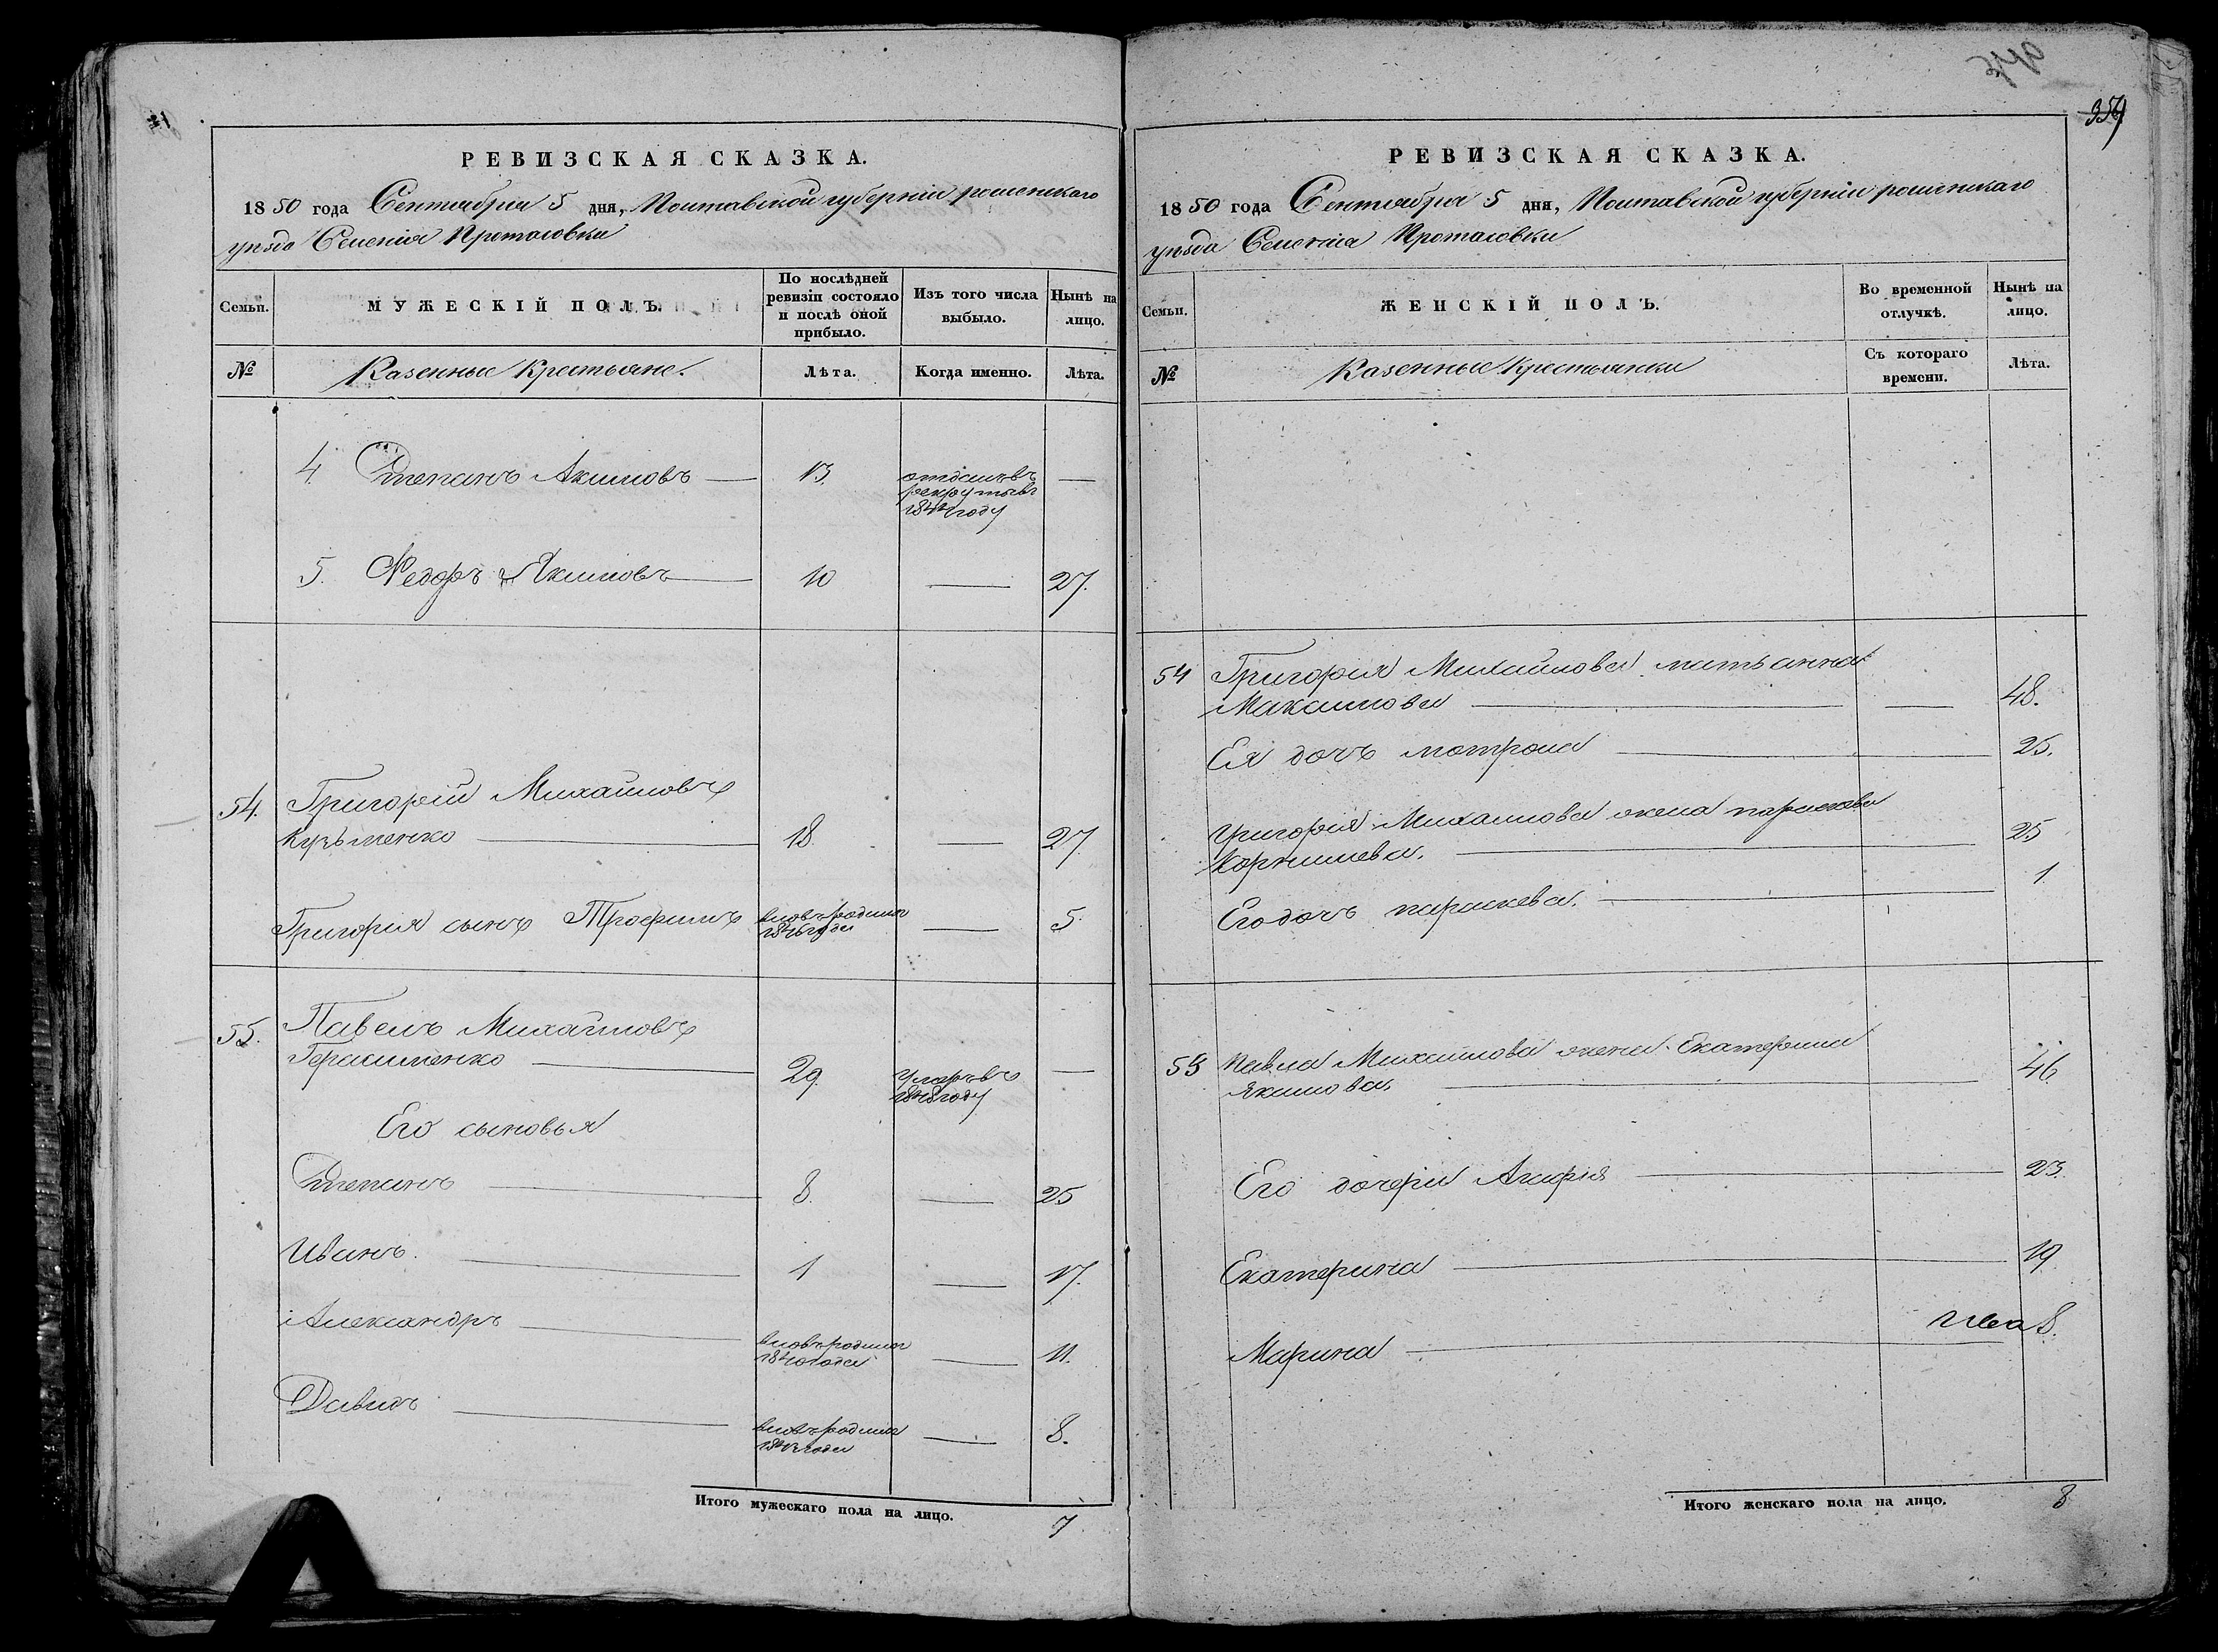 359
РЕВИЗСКАЯ СКАЗКА.
1850 года Сентября 5 дня, Полтавской губерніи роменскаго
уѣзда Селенія Протасовки
Семьи.
МУЖЕСКІЙ ПОЛЪ.
По послѣдней ревизіи состояло и послѣ оной прибыло.
Изъ того числа выбыло.
Нынѣ на лицо.
№
Казенные Крестьяне.
Лѣта.
Когда именно.
Лѣта.
4 Степанъ Акимовъ — 13. отданъ въ —
рекруты въ
году
5. Ѳедоръ Якимовъ — 10 — 27.
54. Григорій Михайловъ
Кузьменко — 18. — 27
Григорія сынъ Трофимъ вновь родился — 5.
1846 года
55. Павелъ Михайловъ
Герасименко — 29. умеръ въ —
1848 году
Его сыновья
Степанъ — 8. — 25
Иванъ. — 1 — 17.
Александръ — вновь родился — 11.
1840 года
Давидъ — вновь родился — 8.
1843 года
Итого мужескаго пола на лицо. 7
РЕВИЗСКАЯ СКАЗКА.
1850 года Сентября 5 дня, Полтавской губерніи роменскаго
уѣзда Селенія Протасовки
Семьи.
ЖЕНСКІЙ ПОЛЪ.
Во временной отлучкѣ.
Нынѣ на лицо.
№
Казенные Крестьянки
Съ котораго времени.
Лѣта.
54 Григорія Михайлова мать анна
Максимова — — 48.
Ея дочь мотрона — 25.
Григорія Михайлова жена параскева
Корнилиева. — 25
Его дочь параскева. — 1
55 Павла Михайлова жена Екатерина
Якимова. — 46.
Его дочери Агафія — 23.
Екатерина — 19
Марина — 8.
Итого женскаго пола на лицо. 8